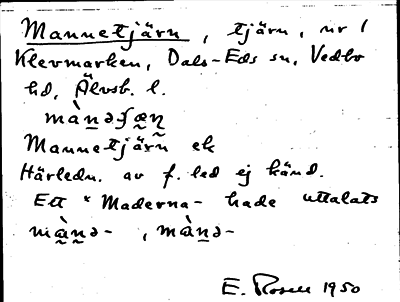 Mannetjärn, tjärn, nr 1
Klevmarken, Dals-Eds sn, Vedbo
hd, Älvsb. l.
mànəʃæ̰ṋ
Mannetjärn ek
Härledn. av f. led ej känd.
Ett * Maderna- hade uttalats
mà̰ṋə- , màṉə-
E. Rosell 1950